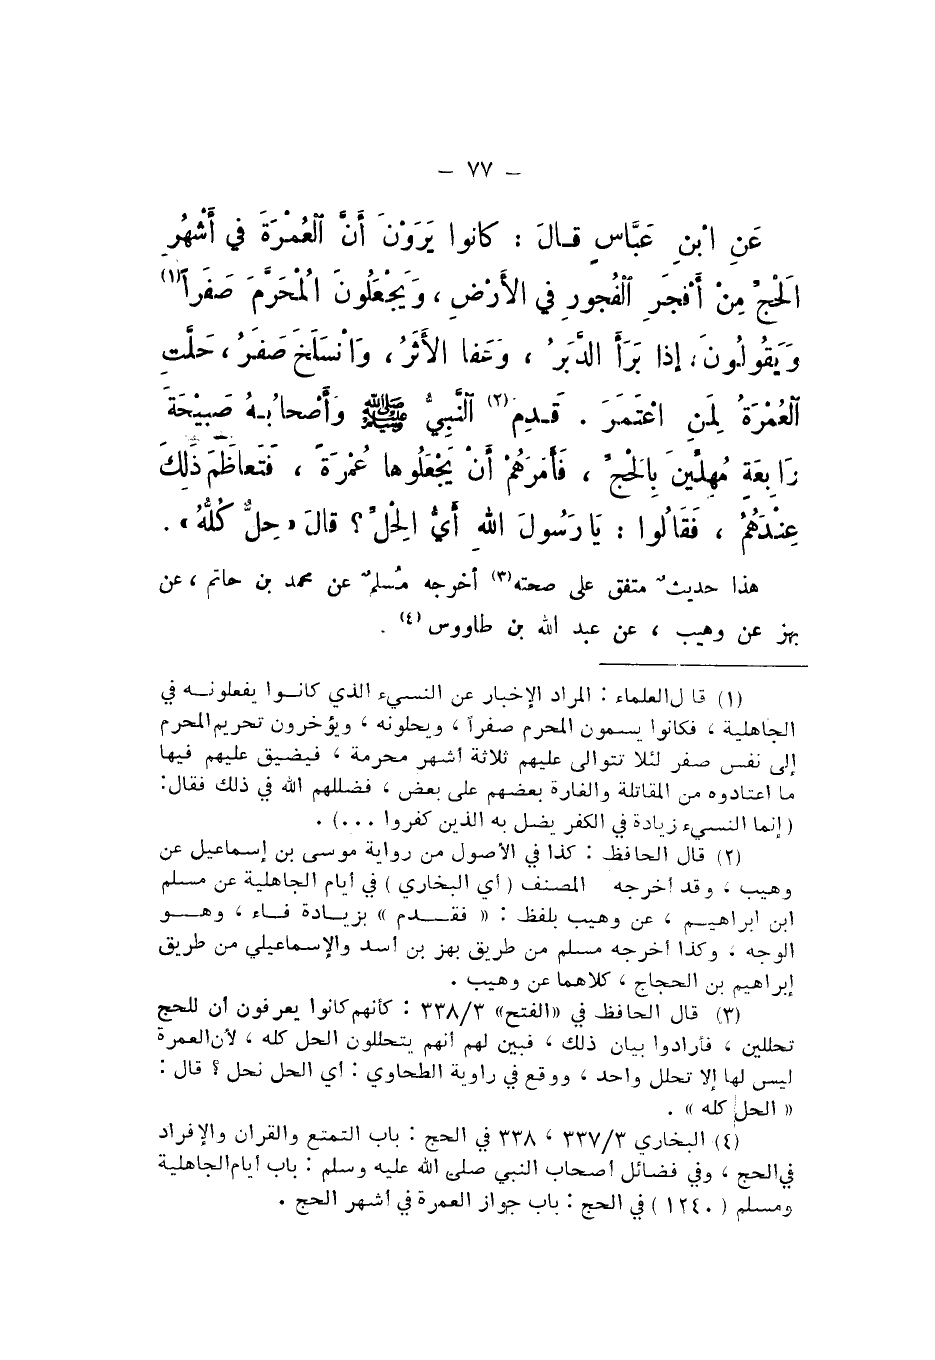 – ٧٧ –
عَنِ ابْنِ عَبَّاسٍ قـالَ : كانوا يَرَوْنَ أَنَّ ٱلعُمْرَةَ في أَشْهُرِ
الَحْجِّ مِنْ أَفْجَرِ ٱلْفُجورِ في الأَرْضِ ، وَيَجْعَلُونَ الُمْحَرَّمَ صَفَراً(١)
وَيَقُولُونَ، إِذا بَرَأَ الدَّبَرُ ، وَعَفا الأَثَرُ ، وَانْسَلَخَ صَفَرُ ، حَلَّتِ
ٱلعُمْرَةُ لِمَنِ اعْتَمَرَ . قَـدِمَ(٢) ٱلنَّبِيُّ ﷺ وَأَصْحابُـهُ صَبِيْحَةَ
رَابِعَةٍ مُهِلِّيْنَ بِالَحْجِّ ، فَأَمَرَهُمْ أَنْ يَجْعَلُوها عُمْرَةً ، فَتَعاظَمَ ذَلِكَ
عِنْدَهُمْ ، فَقَالُوا : يَارَسُولَ اللهِ أَيُّ الِحْلِّ ؟ قالَ « حِلٌّ كُلُّهُ » .
هذا حديثٌ متفق على صحته(٣) أخرجه مُسلمٌ عن محمد بن حاتم ، عن
بهز عن وهيب ، عن عبد الله بن طاووس(٤) .
(١) قا ل العلماء : المراد الإخبار عن النسيء الذي كانـوا يفعلونـه في
الجاهلية ، فكانوا يسمون المحرم صفراً ، ويحلونه ، ويؤخرون تحريم المحرم
إلى نفس صفر لئلا تتوالى عليهم ثلاثة أشهر محرمة ، فيضيق عليهم فيها
ما اعتادوه من المقاتلة والغارة بعضهم على بعض ، فضللهم الله في ذلك فقال:
( إنما النسيء زيادة في الكفر يضل به الذين كفروا ...) .
(٢) قال الحافظ : كذا في الأصول من رواية موسى بن إسماعيل عن
وهيب ، وقد أخرجه المصنف ( أي البخاري ) في أيام الجاهلية عن مسلم
ابن ابراهيـم ، عن وهيب بلفظ : « فقـدم » بزيـادة فـاء ، وهـو
الوجه . وكذا أخرجه مسلم من طريق بهز بن أسد والإسماعيلي من طريق
إبراهيم بن الحجاج ، كلاهما عن وهيب .
(٣) قال الحافظ في «الفتح» ٣/٣٣٨ : كأنهم كانوا يعرفون أن للحج
تحللين ، فأرادوا بيان ذلك ، فبين لهم أنهم يتحللون الحل كله ، لأن العمرة
ليس لها إلا تحلل واحد ، ووقع في راوية الطحاوي : أي الحل نحل ؟ قال :
« الحل كله » .
(٤) البخاري ٣/٣٣٧ ، ٣٣٨ في الحج : باب التمتع والقران والإفراد
في الحج ، وفي فضائل أصحاب النبي صلى الله عليه وسلم : باب أيام الجاهلية
ومسلم ( ١٢٤٠ ) في الحج : باب جواز العمرة في أشهر الحج .